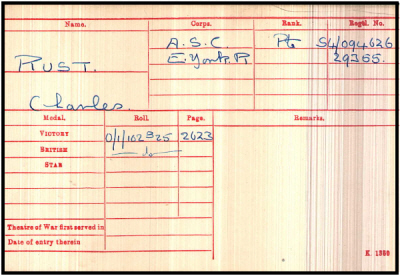 Name. Corps. Rank. Regtl. No.
A.S.C. Pte S4/094626
RUST. E. York. R 29365.
Charles.
Medal. Roll. Page. Remarks.
VICTORY O/1/102B25 2623
BRITISH do
STAR
Theatre of War first served in
Date of entry therein
K. 1380